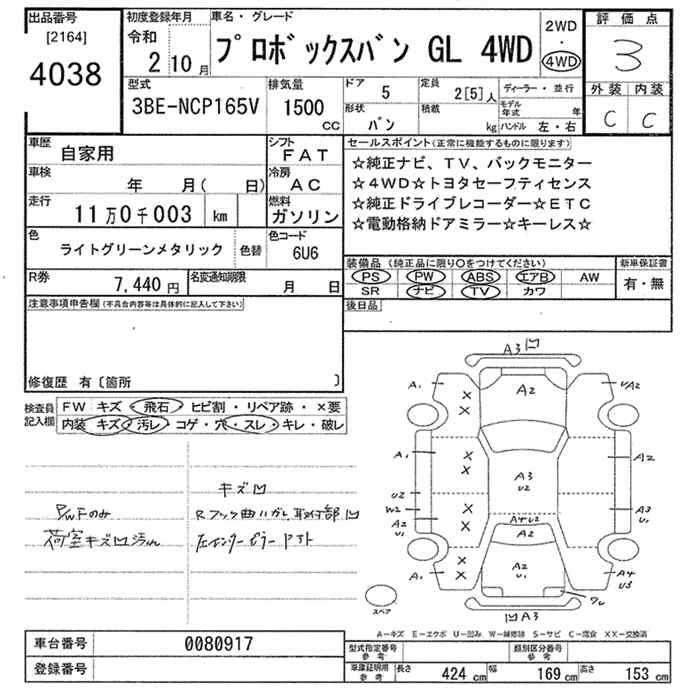 出品番号
[2164]
4038
初度登録年月
令和
2 10 月
車名・グレード
プロボックスバン GL 4WD
2WD
・
4WD
評価点
3
外装 内装
C C
型式
3BE-NCP165V
排気量
1500
cc
ドア
5
定員
2[5]人
形状
バン
積載
kg
ディーラー・並行
モデル年式 年
ハンドル 左・右
車歴
自家用
シフト
FAT
車検
年 月( 日)
冷房
AC
走行
11万0千003 km
燃料
ガソリン
色
ライトグリーンメタリック
色替
色コード
6U6
R券
7,440 円
名変通知期限
月 日
セールスポイント(正常に機能するものに限ります)
☆純正ナビ、TV、バックモニター
☆4WD☆トヨタセーフティセンス
☆純正ドライブレコーダー☆ETC
☆電動格納ドアミラー☆キーレス☆
装備品(純正品に限り○をつけてください)
新車保証書
PS PW ABS エアB AW
SR ナビ TV カワ
有・無
注意事項申告欄(不具合内容等は具体的に記入して下さい)
後日品
修復歴 有〔箇所 〕
検査員
記入欄
FW キズ・飛石・ヒビ割・リペア跡・×要
内装 キズ・汚レ・コゲ・穴・スレ・キレ・破レ
キズ凹
PWFのみ
荷室キズ凹汚れ
A3凹
A1 × A2 UA2
×
A1 × A3 A2
× U2
U2
W2 × A3
A2 × A4U2 U1
U1 A2
A1 × A2 A4
× U1 U3
スペア
凹A3
A-キズ E-エクボ U-凹み W-補修跡 S-サビ C-腐食 XX-交換済
車台番号
0080917
登録番号
型式指定番号
参考
類別区分番号
参考
車庫証明用
参考
長さ 424 cm 幅 169 cm 高さ 153 cm